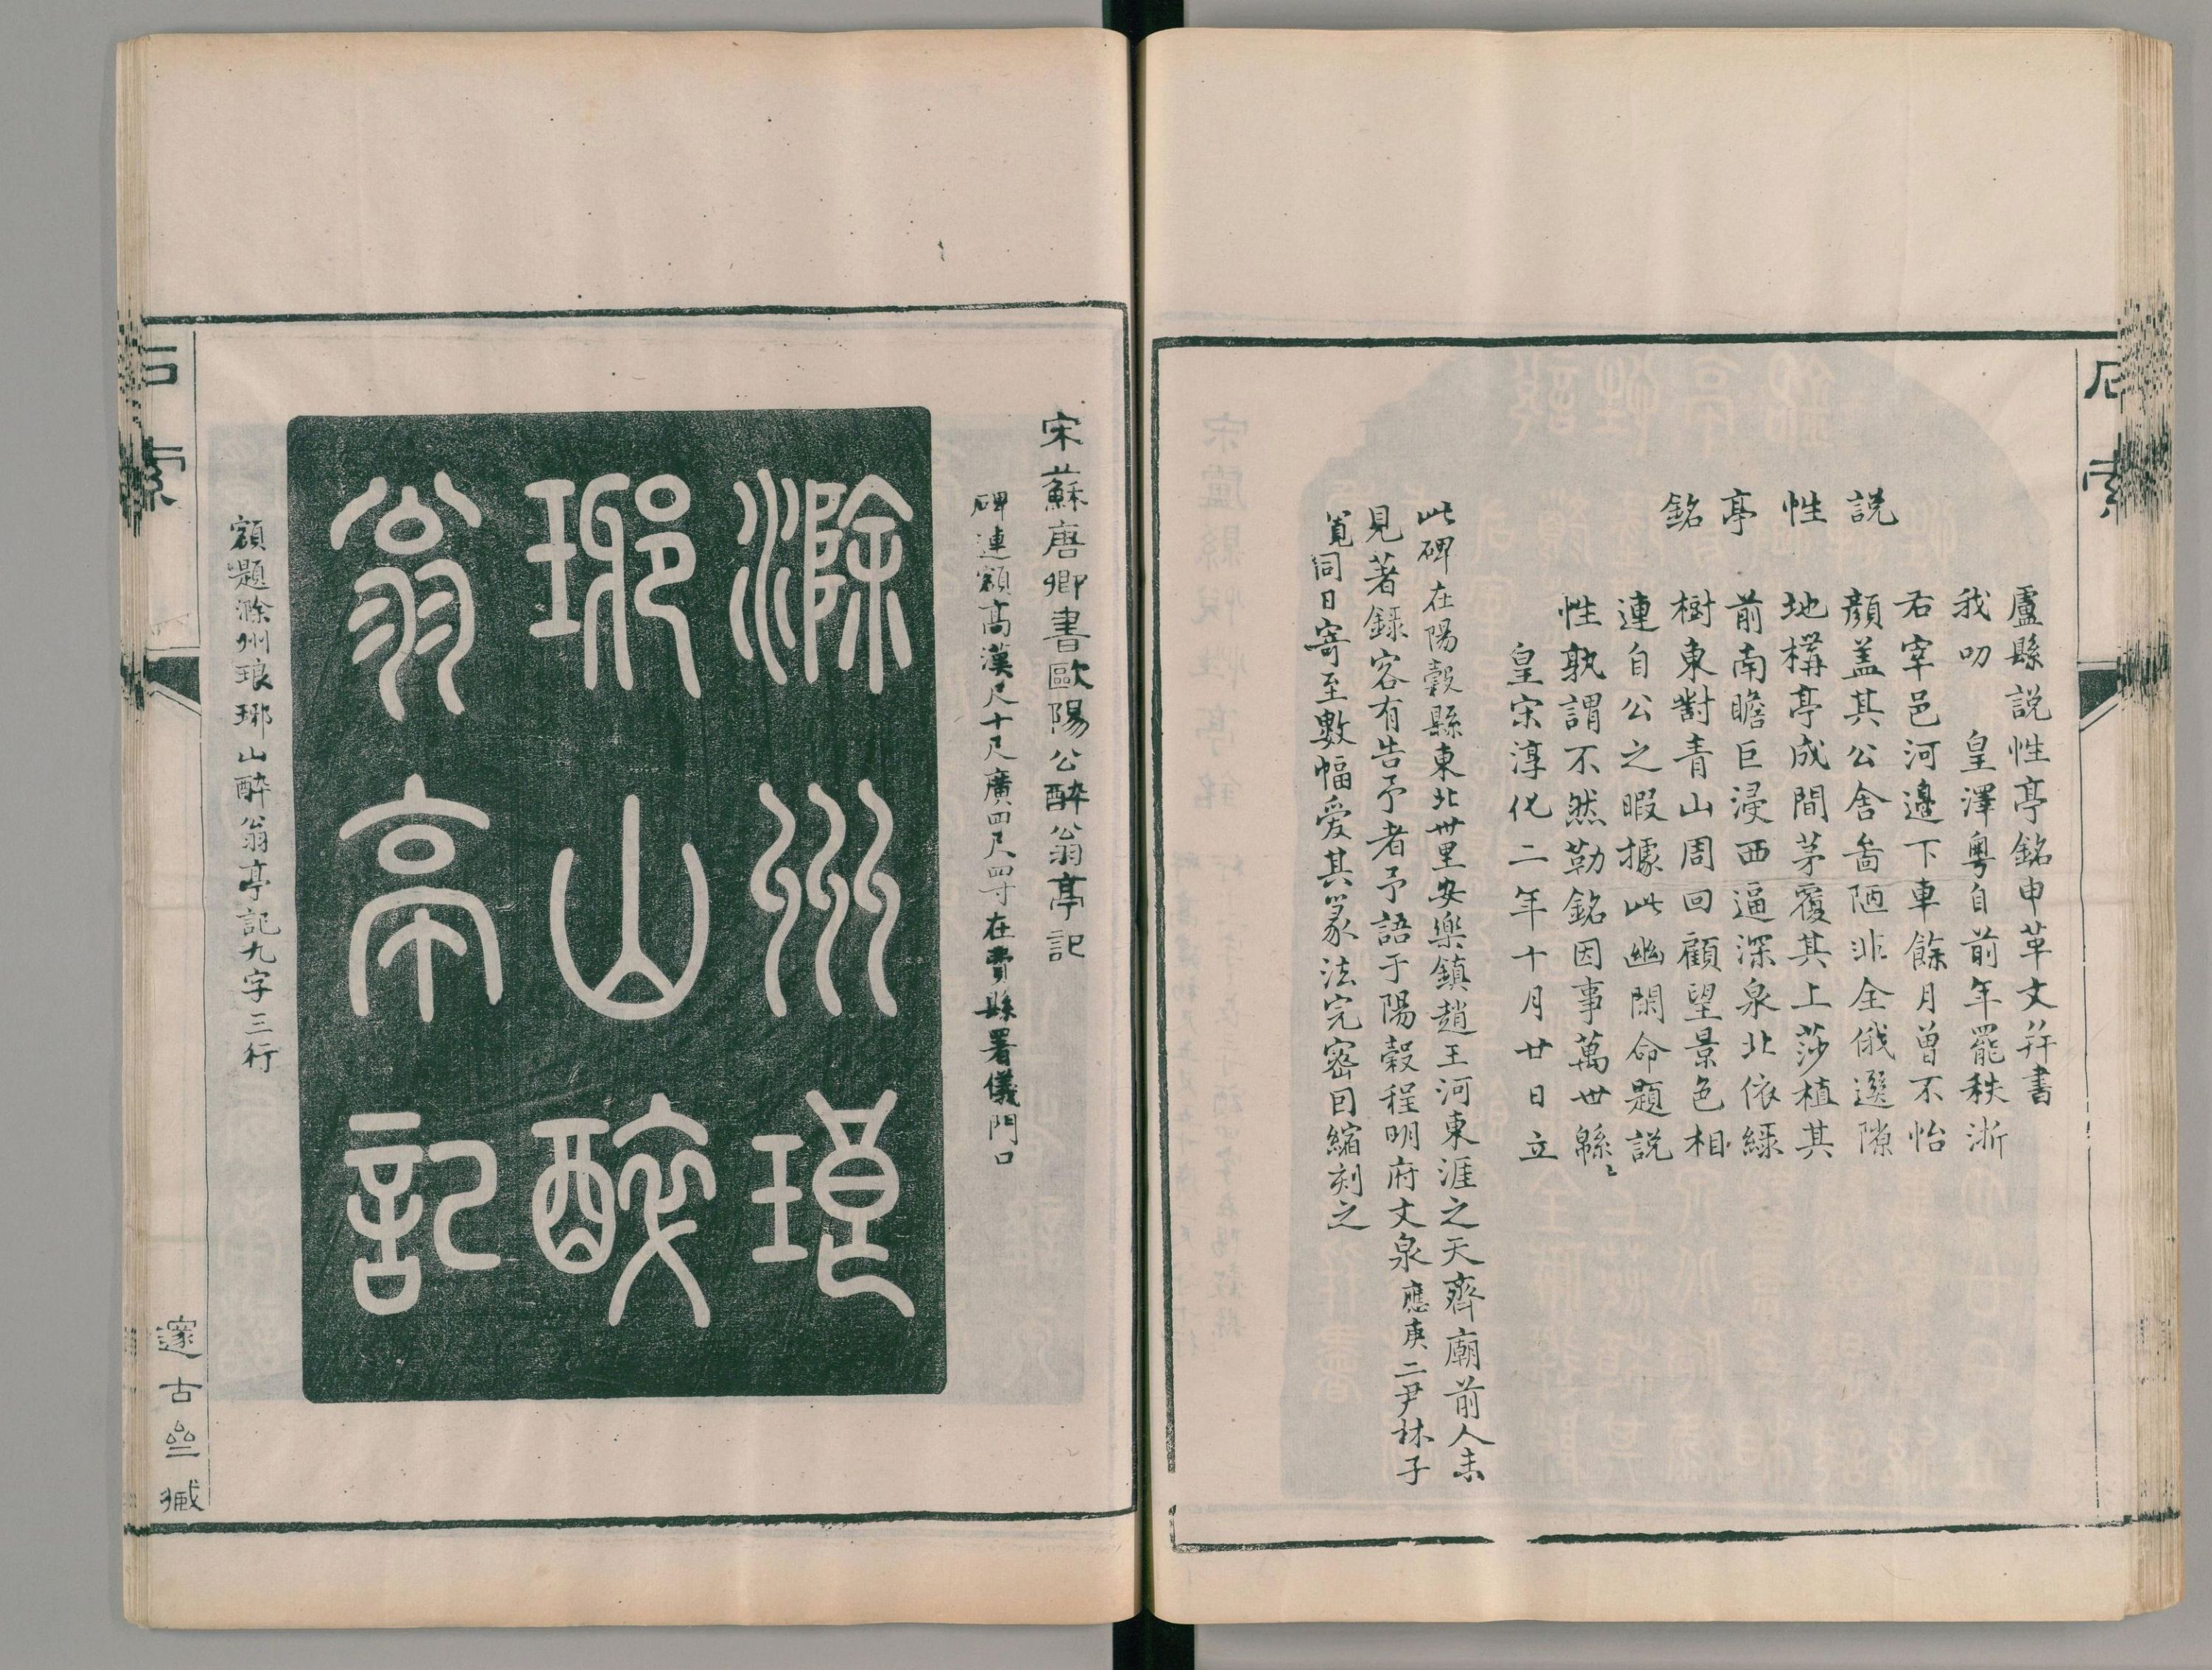 石索
說性亭銘
盧縣說性亭銘申革文并書
我叨　皇澤粵自前年罷秩浙
右宰邑河邊下車餘月曾不怡
顏蓋其公舍啚陋非全俄選隙
地構亭成間茅覆其上莎植其
前南瞻巨浸西逼深泉北依綠
樹東對青山周回顧望景色相
連自公之暇據此幽閑命題說
性孰謂不然勒銘因事萬世緜〻
皇宋淳化二年十月廿日立
此碑在陽穀縣東北卅里安樂鎮趙王河東涯之天齊廟前人未
見著錄客有告予者予語于陽穀程明府文泉應庚二尹林子
寬同日寄至數幅爰其篆法完密因縮刻之
宋蘇唐卿書歐陽公醉翁亭記
碑連額高漢尺十尺廣四尺四寸在費縣署儀門口
滁州琅
琊山醉
翁亭記
額題滁州琅琊山醉翁亭記九字三行
石索
邃古齋臧